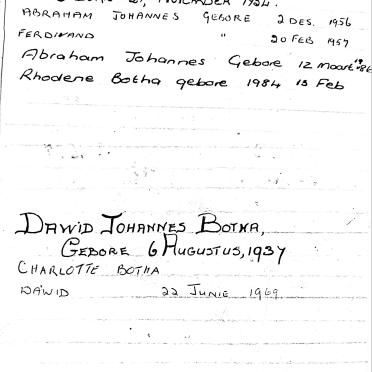 NOVEMBER 1954.
ABRAHAM JOHANNES GEBORE 2 DES. 1956
FERDINAND " 20 FEB 1957
Abraham Johannes Gebore 12 Maart
Rhodene Botha gebore 1984 13 Feb
DAWID JOHANNES BOTHA,
GEBORE 6 AUGUSTUS, 1937
CHARLOTTE BOTHA
DAWID 22 JUNIE 1969